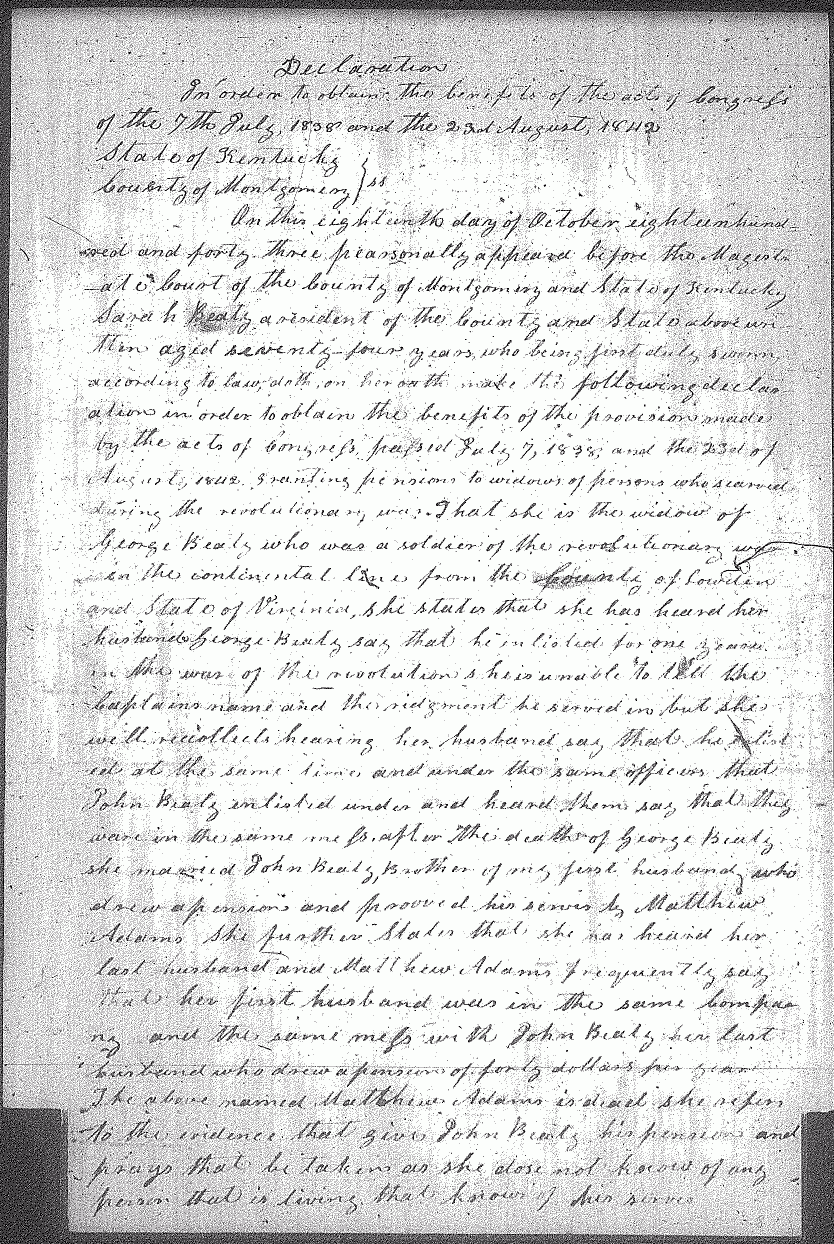 Declaration
In order to obtain the benefits of the acts of Congress
of the 7th July, 1838 and the 23d August, 1842
State of Kentucky
County of Montgomery } ss
On this eighteenth day of October eighteen hund-
red and forty three pearsonally appeard before the Magistr-
ate Court of the County of Montgomery and State of Kentucky
Sarah Beaty a resident of the County and State above wri-
tten aged seventy four years, who being first duly sworn,
according to law, doth, on her oath make the following declar
ation in order to obtain the benefits of the provision made
by the acts of Congress passed July 7, 1838, and the 23d of
August, 1842 granting pensions to widows of persons who searved
during the revolutionary war. That she is the widow of
George Beaty who was a soldier of the revolutionary war
in the continental line from the County of Lowden
and State of Virginia, she states that she has heard her
husband George Beaty say that he inlisted for one year
in the war of the revolution she is unable to tell the
Captains name and the ridgment he served in but she
well recollects hearing her husband say that he enlist
ed at the same time and under the same officers that
John Beaty enlisted under and heard them say that they
ware in the same mess, after the death of George Beaty
she married John Beaty, Brother of my first husband, who
drew a pension and prooved his servis by Matthew
Adams she further States that she has heard her
last husband and Matthew Adams frequently say
that her first husband was in the same Compa-
ny and the same mess with John Beaty her last
husband who drew a pension of forty dollars per year
The above named Matthew Adams is dead she refers
to the evidence that give John Beaty his pension and
prays that be taken as she dose not know of any
person that is living that knows of his servis